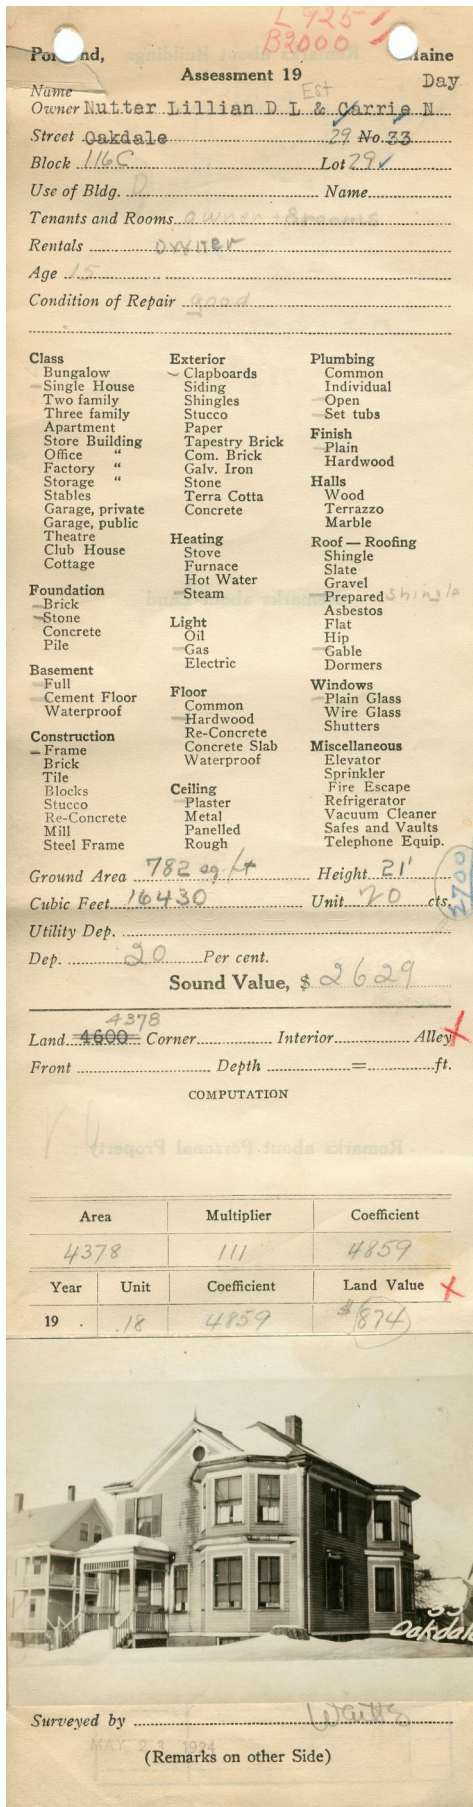 L 925
B2000
Portland, Maine
Assessment 19 Day
Name Est
Owner Nutter Lillian D L & Carrie N
Street Oakdale 29 No. 33
Block 116C Lot 29
Use of Bldg. D Name
Tenants and Rooms owner 8 rooms
Rentals owner
Age 15
Condition of Repair good
Class
Bungalow
Single House
Two family
Three family
Apartment
Store Building
Office "
Factory "
Storage "
Stables
Garage, private
Garage, public
Theatre
Club House
Cottage
Foundation
Brick
Stone
Concrete
Pile
Basement
Full
Cement Floor
Waterproof
Construction
Frame
Brick
Tile
Blocks
Stucco
Re-Concrete
Mill
Steel Frame
Exterior
Clapboards
Siding
Shingles
Stucco
Paper
Tapestry Brick
Com. Brick
Galv. Iron
Stone
Terra Cotta
Concrete
Heating
Stove
Furnace
Hot Water
Steam
Light
Oil
Gas
Electric
Floor
Common
Hardwood
Re-Concrete
Concrete Slab
Waterproof
Ceiling
Plaster
Metal
Panelled
Rough
Plumbing
Common
Individual
Open
Set tubs
Finish
Plain
Hardwood
Halls
Wood
Terrazzo
Marble
Roof — Roofing
Shingle
Slate
Gravel
Prepared shingle
Asbestos
Flat
Hip
Gable
Dormers
Windows
Plain Glass
Wire Glass
Shutters
Miscellaneous
Elevator
Sprinkler
Fire Escape
Refrigerator
Vacuum Cleaner
Safes and Vaults
Telephone Equip.
Ground Area 782 sq/ft Height 21'
Cubic Feet 16430 Unit 20 cts.
2700
Utility Dep.
Dep. 20 Per cent.
Sound Value, $ 2629
4378
Land 4600 Corner Interior Alley
Front Depth = ft.
COMPUTATION
Area Multiplier Coefficient
4378 111 4859
Year Unit Coefficient Land Value
19 .18 4859 $874
33
Oakdale
Surveyed by
MAY 23 1924
(Remarks on other Side)